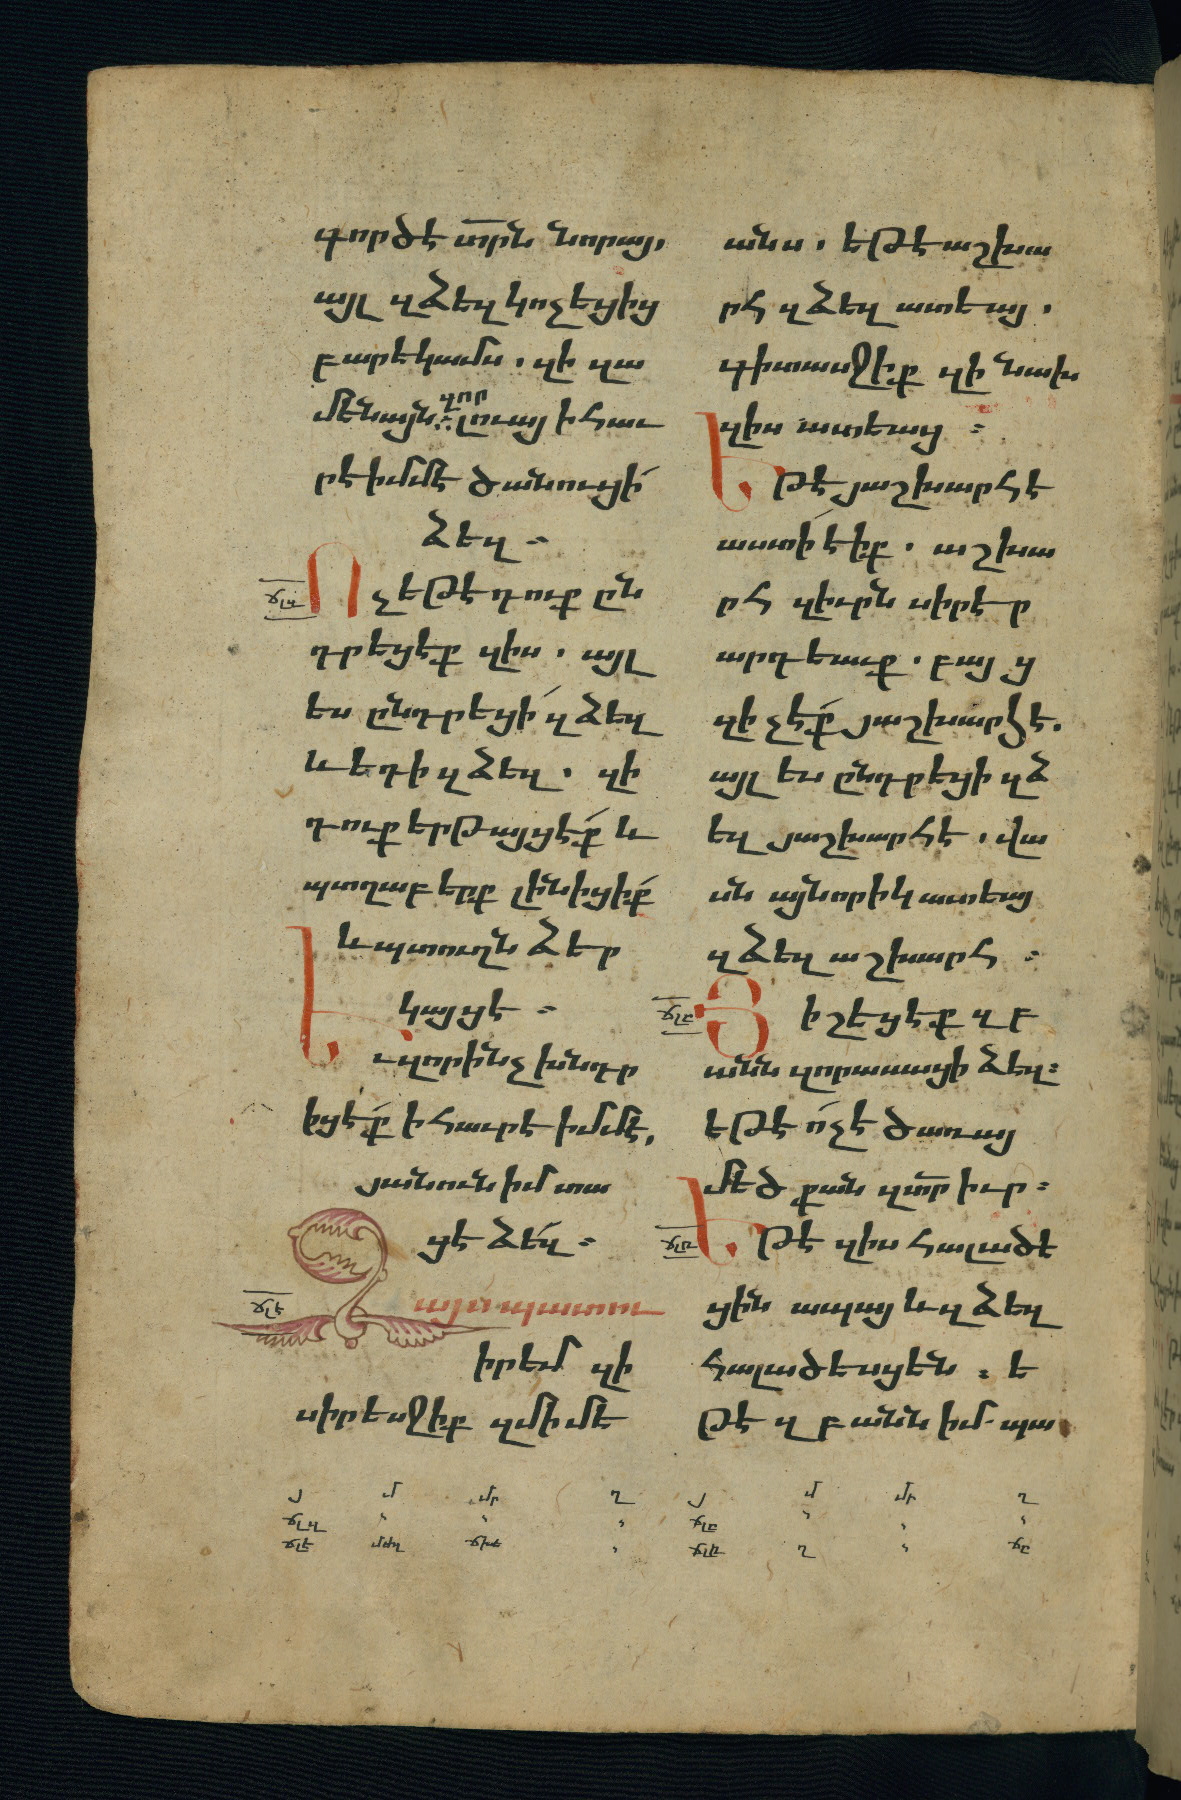 գործէ տրն նորայ,
այլ զձեզ կոչեցից
բարեկամս. զի զա
մենայն զոր լուայ ի հաւ
րէ իմմէ ծանուցի
ձեզ։
Ոչ եթէ դուք ըն
ճլդ
դրեցէք զիս. այլ
ես ընդրեցի զձեզ
և եդի զձեզ. զի
դուք երթայցէք և
պտղաբերք լինիցիք
և պտուղն ձեր
կայցէ։
Եւ զոր ինչ խնդր
իցէք ի հաւրէ իմմէ,
յանուն իմ տա
ցէ ձեզ։
ճլե
Զայս պատու
իրեմ զի
սիրեսջիք զմիմե
անս. եթէ աշխա
րհ զձեզ ատեայ.
գիտասջիք զի նախ
զիս ատեաց։
Եթէ յաշխարհէ
աստի էիք. աշխա
րհ զիւրն սիրէր
արդեաւք. բայց
զի չէք յաշխարհէ.
այլ ես ընդրեցի զձ
եզ յաշխարհէ. վա
սն այնորիկ ատեայ
զձեզ աշխարհ։
ճլզ
Յիշեցէք զբ
անն զոր ասացի ձեզ։
եթէ ոչ է ծառայ
մեծ քան զտր իւր։
ճլը
Եթէ զիս հալածե
ցին ապայ և զձեզ
հալածեսցեն։ ե
թէ զբանն իմ պա
յ մ մր ղ յ մ մր ղ